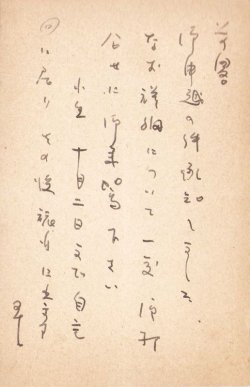 前略
御申越の件承知しました
なお詳細について一度御打
合せに御来駕下さい
小生 十月二日まで自宅
に居り その後旅行に出ます
早々